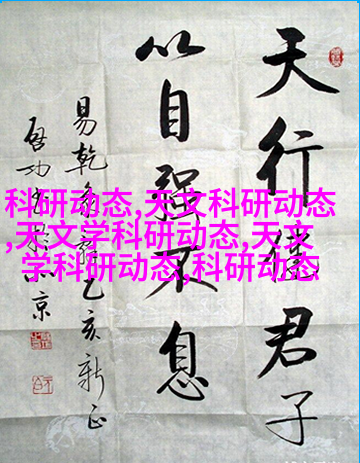 天行健君子
以自强不息
易乾乙亥新正
启功京
科研动态,天文科研动态
,天文学科研动态,天文
学科研动态,科研动态